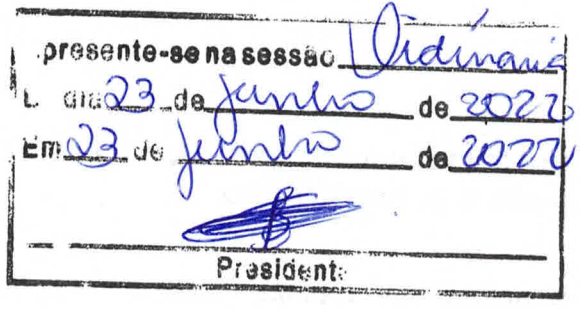 presente-se na sessão Ordinaria
dia 23 de junho de 2022
Em 23 de junho de 2022
President